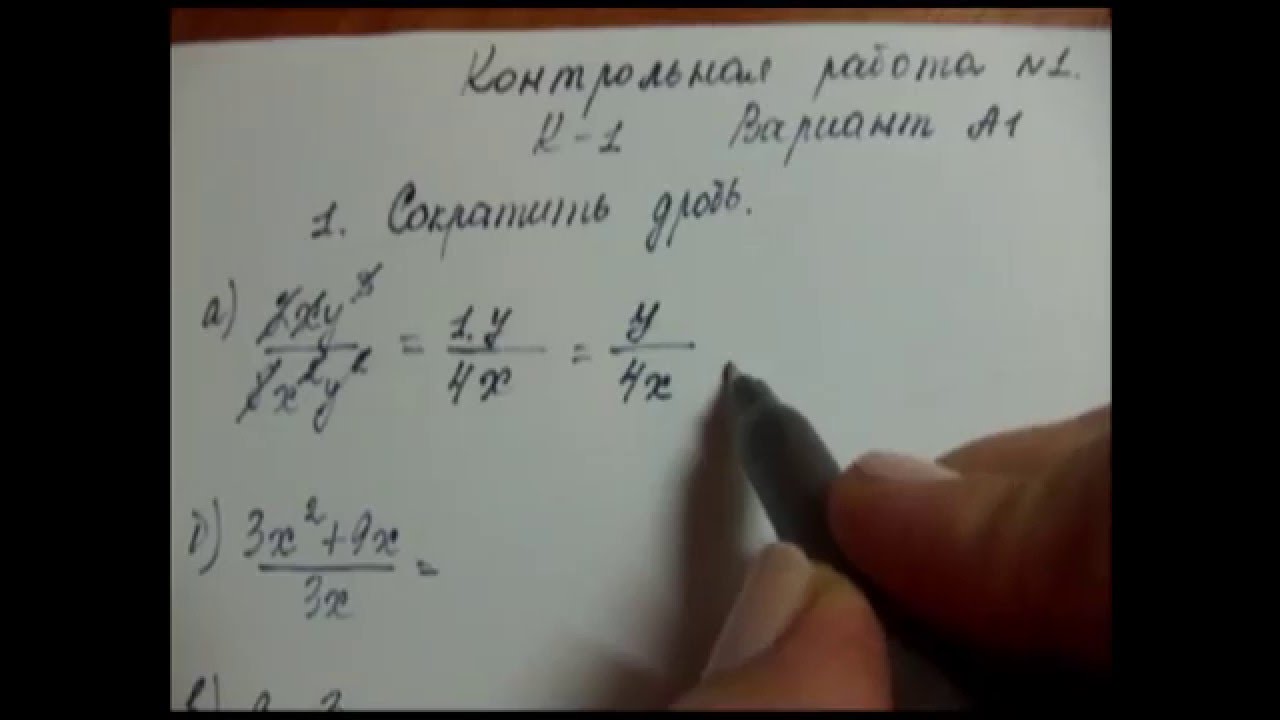 Контрольная работа №1.
К-1 Вариант А1
1. Сократить дробь.
а) 2xy³/x²y² = 1·y/4x = y/4x
б) 3x²+9x/3x =